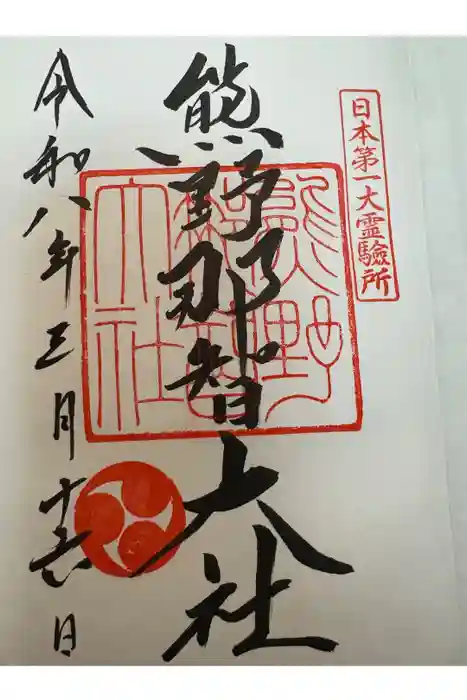 日本第一大霊験所
熊野那智大社
熊野那智大社
令和八年三月十六日